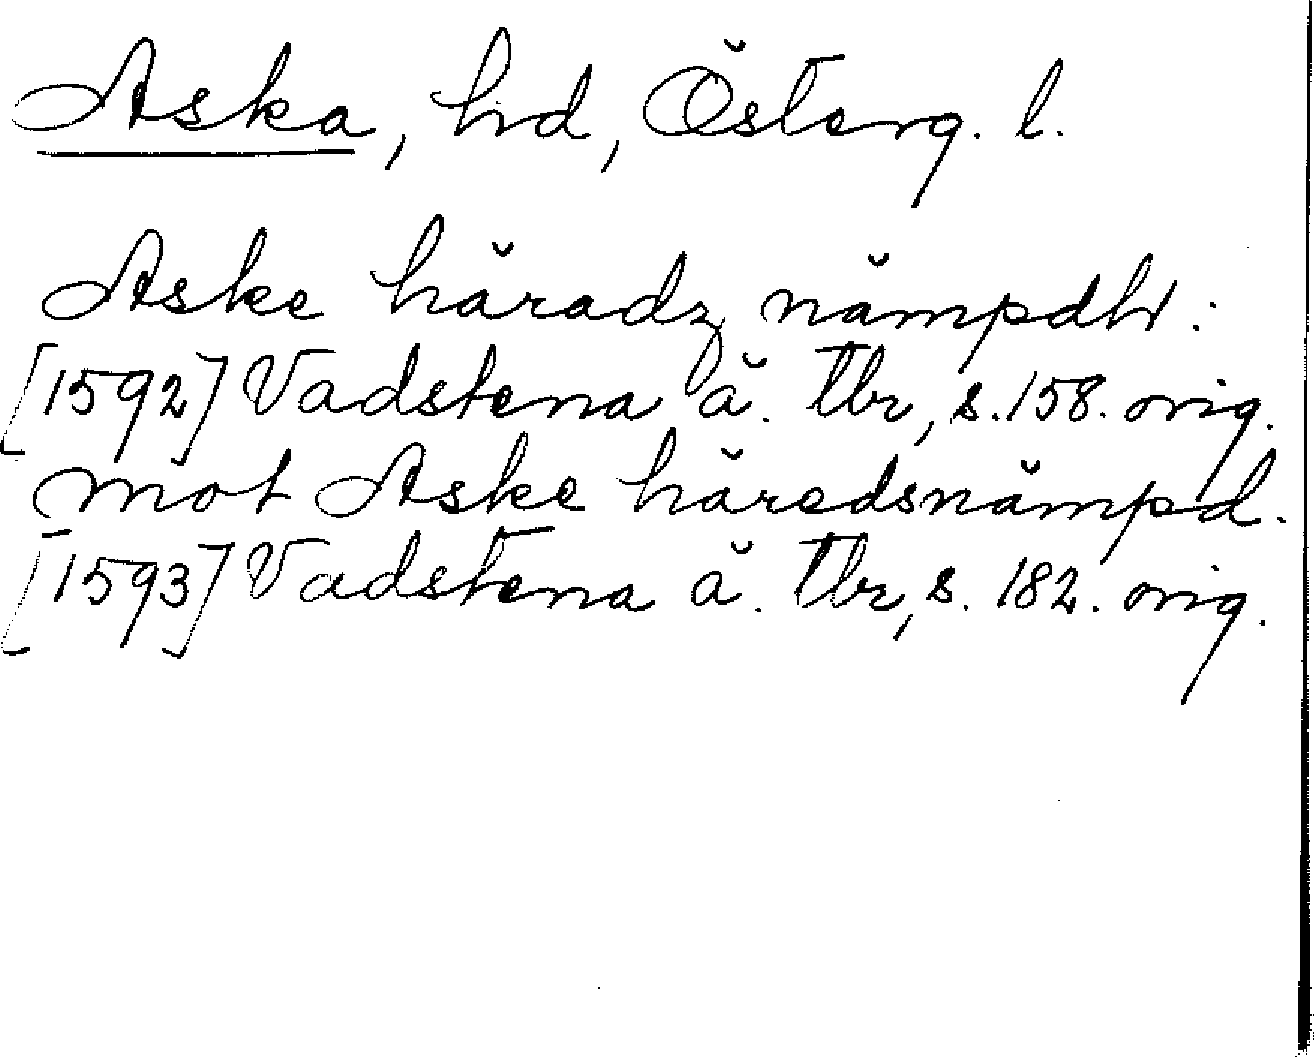 Aska, hd, Österg. l.
Aske häradz nämpdh:
[1592] Vadstena ä. tbr, s. 158. orig.
mot Aske häredsnämpd.
[1593] Vadstena ä. tbr, s. 182. orig.